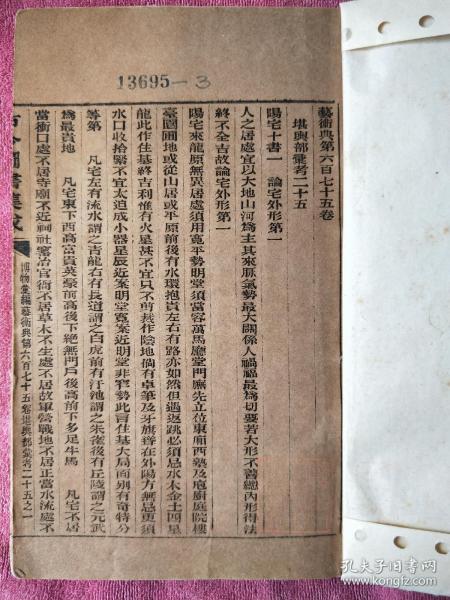 13695-3
藝術典第六百七十五卷
堪輿部彙考二十五
陽宅十書一　論宅外形第一
人之居處宜以大地山河爲主其來脈氣勢最大關係人禍福最爲切要若大形不善總內形得法
終不全吉故論宅外形第一
陽宅來龍原無異居處須用寬平勢明堂須當容萬馬廳堂門廡先立位東廂西塾及庖廚庭院樓
臺園圃地或從山居或平原前後有水環抱貴左右有路亦如然但遇返跳必須忌水木金土四星
龍此作住基終吉利惟有火星甚不宜只不剪裁作陰地倘有卓筆及牙旗聳在外陽方無忌更須
水口收拾緊不宜太迫成小器星辰近案明堂寬案近明堂非窄勢此言住基大局面別有奇特分
等第　凡宅左有流水謂之青龍右有長道謂之白虎前有汙池謂之朱雀後有丘陵謂之元武
爲最貴地　凡宅東下西高富貴英豪前高後下絕無門戶後高前下多足牛馬　凡宅不居
當衝口處不居寺廟不近祠社窰冶官衙不居草木不生處不居故軍營戰地不居正當水流處不
古今圖書集成
博物彙編藝術典第六百七十五卷堪輿部彙考二十五之一
孔夫子旧书网
kongfz.com